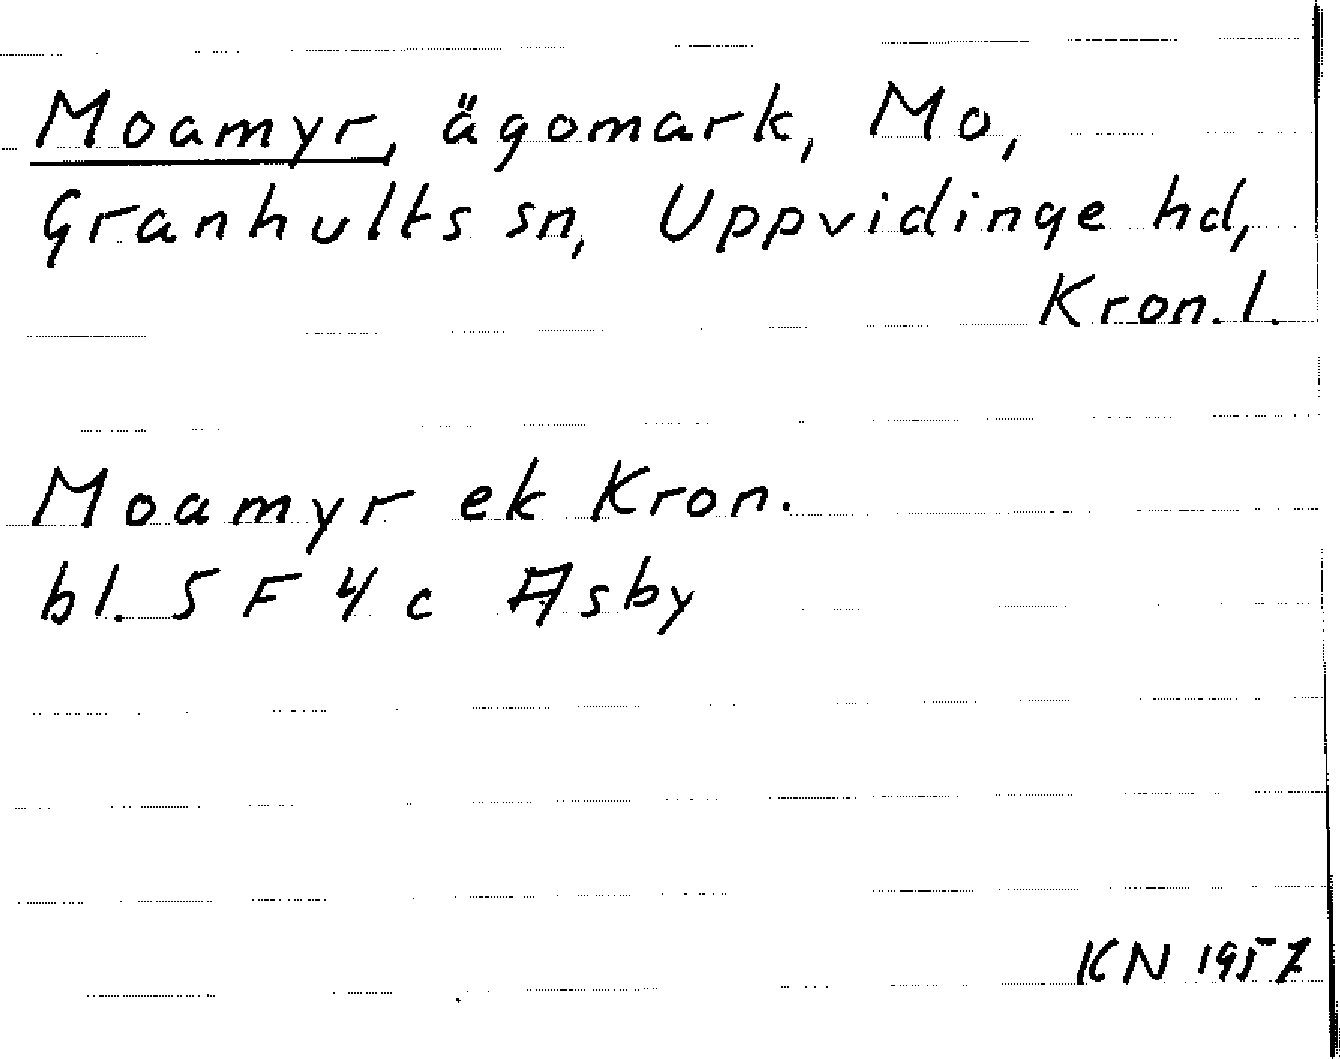 Moamyr, ägomark, Mo,
Granhults sn, Uppvidinge hd,
Kron. l.
Moamyr ek Kron.
bl. 5 F 4 c Asby
KN 1957